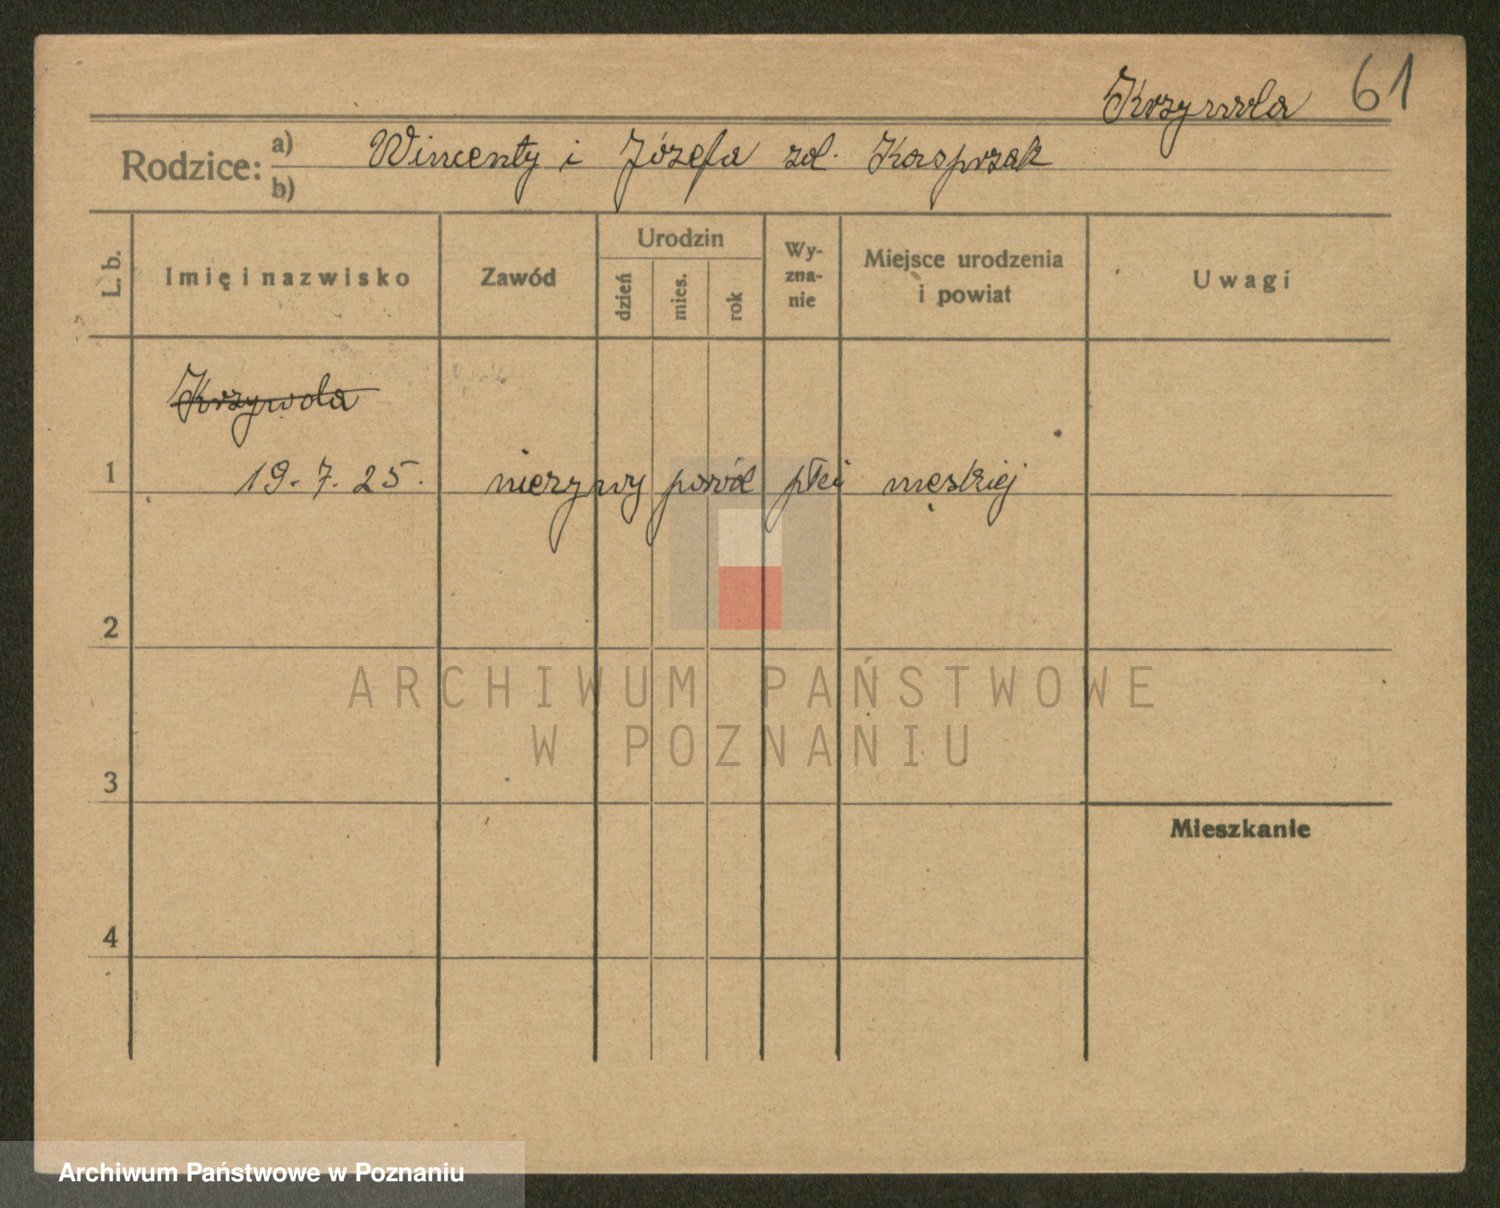 Krzywola 61
Rodzice: a) Wincenty i Józefa zd. Kasprzak
b)
L. b. Imię i nazwisko Zawód Urodzin dzień mies. rok Wyznanie Miejsce urodzenia i powiat Uwagi
Krzywola
1 19.7.25. nieżywy poród płci męskiej
2
ARCHIWUM PAŃSTWOWE
W POZNANIU
3
Mieszkanie
4
Archiwum Państwowe w Poznaniu